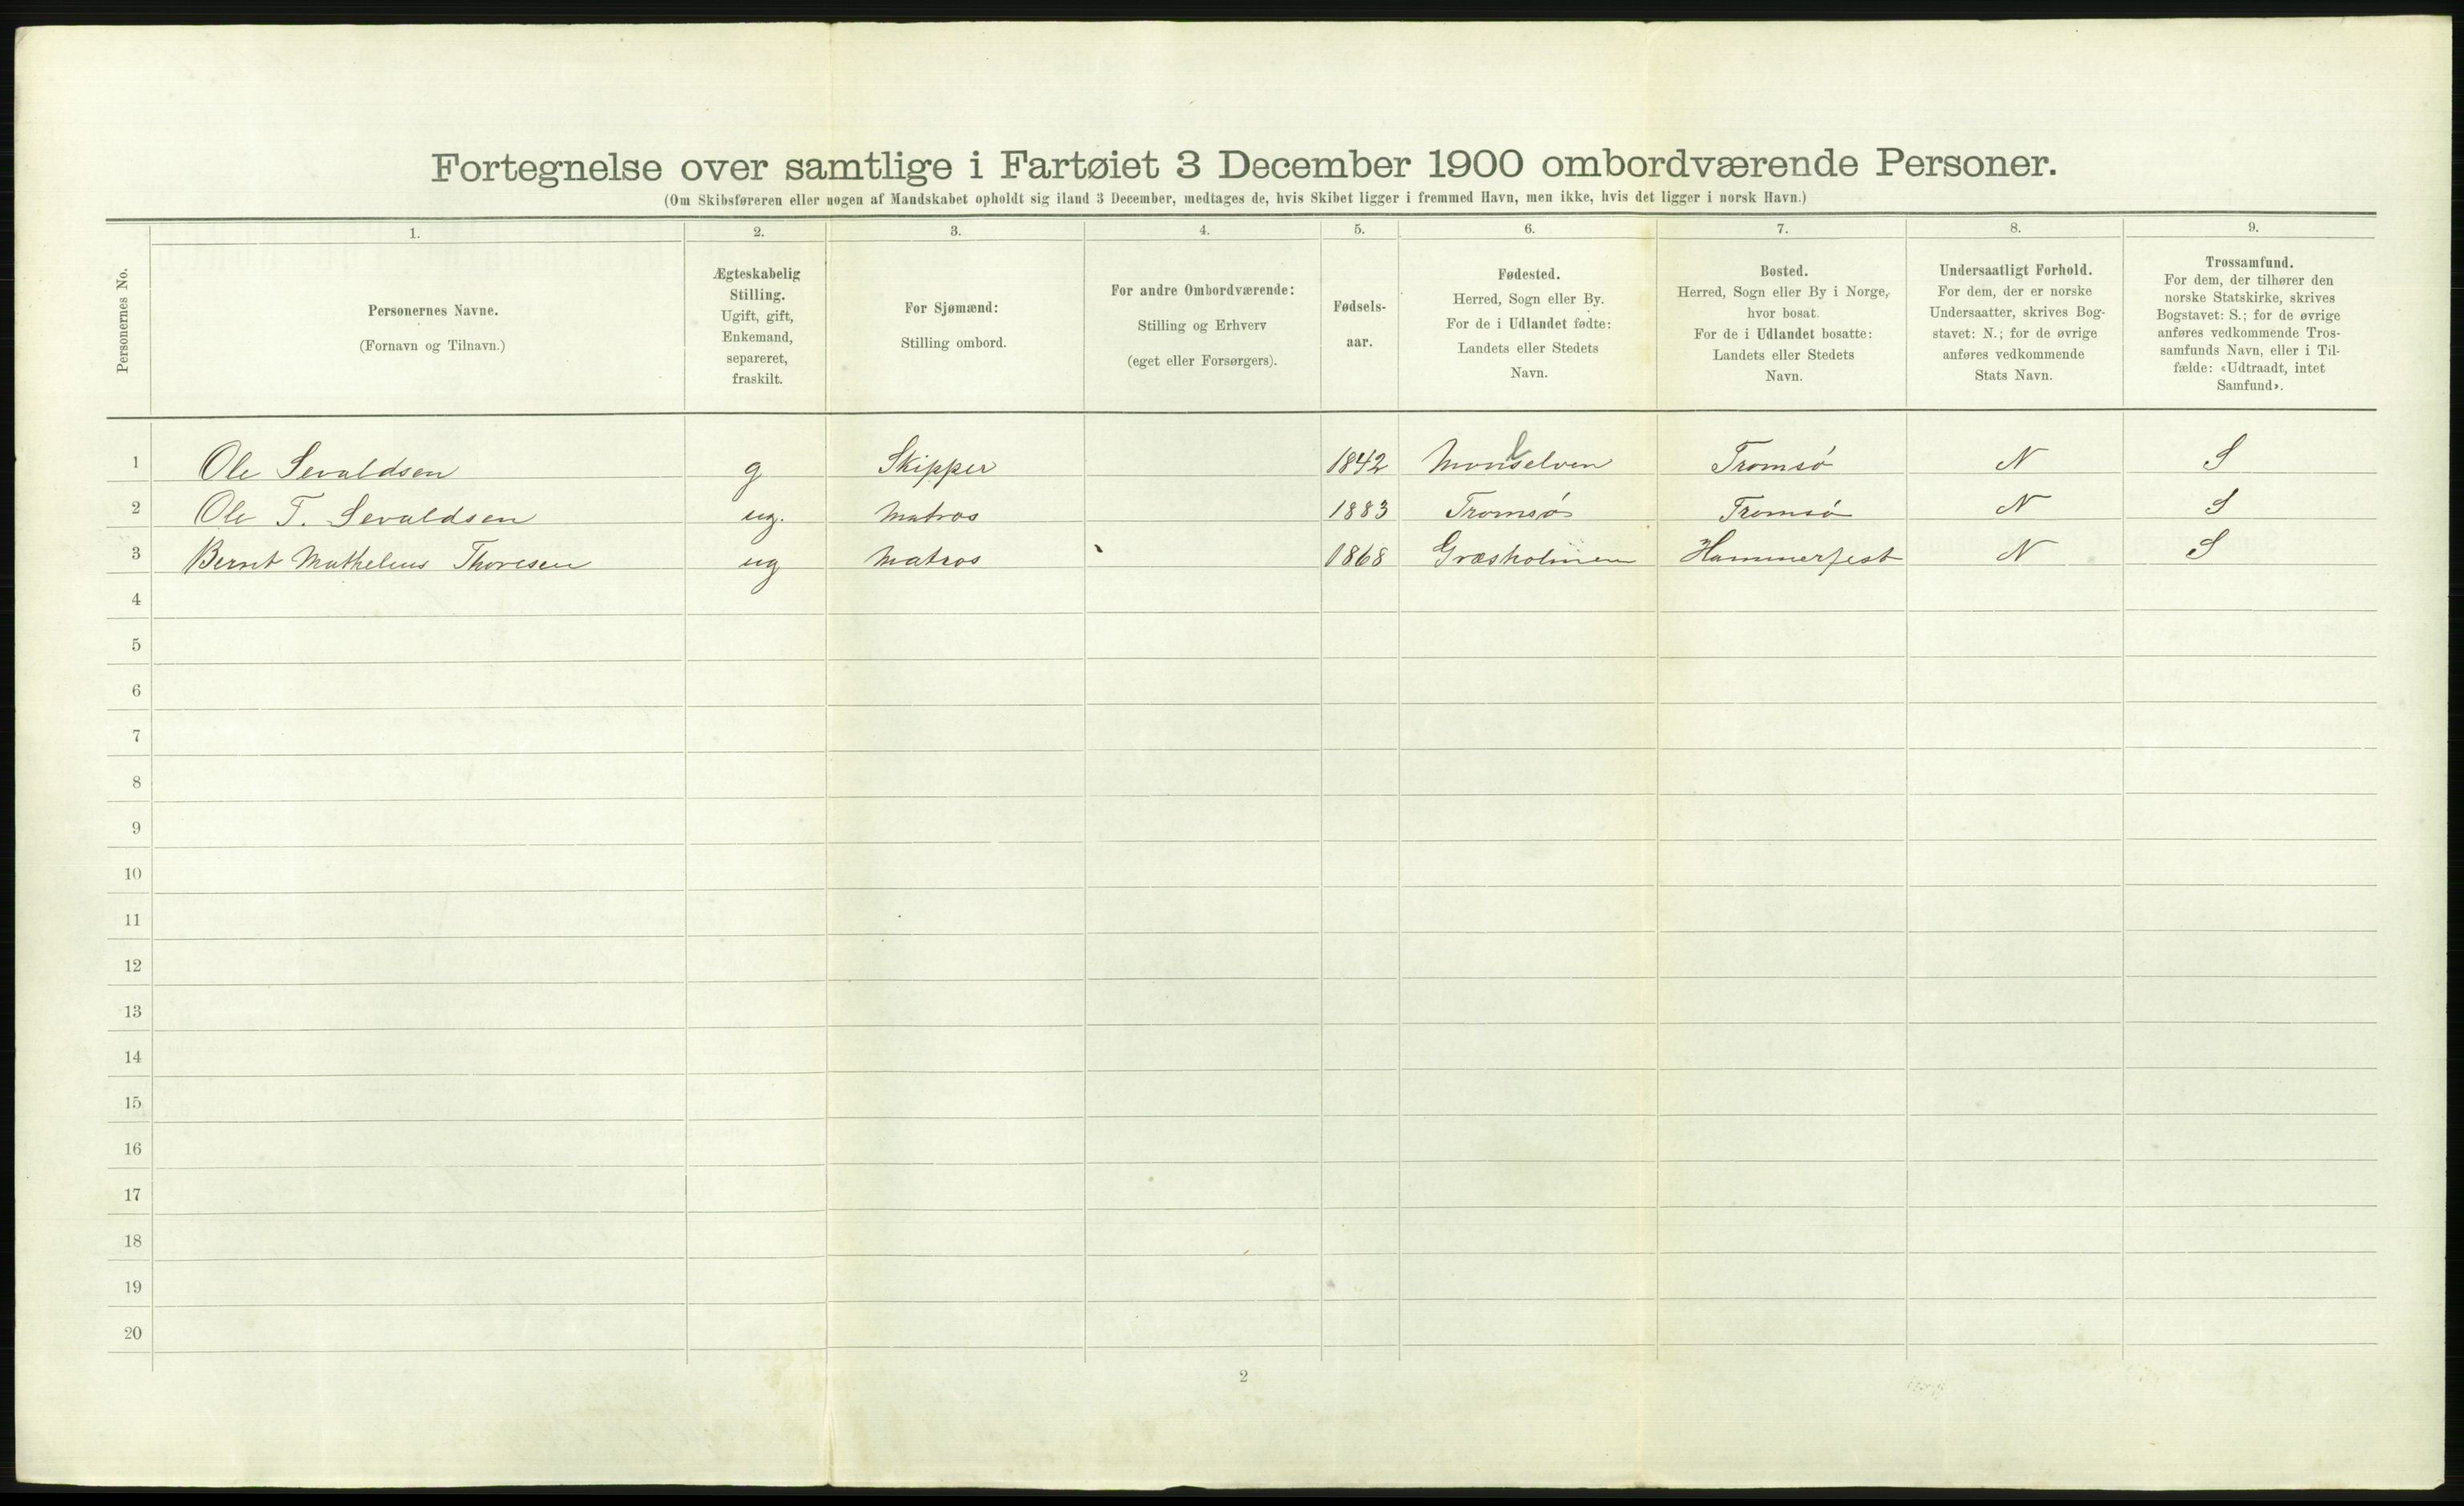 Fortegnelse over samtlige i Fartøiet 3 December 1900 ombordværende Personer.
(Om Skibsføreren eller nogen af Mandskabet opholdt sig iland 3 December, medtages de, hvis Skibet ligger i fremmed Havn, men ikke, hvis det ligger i norsk Havn.)
Personernes No.
1.
Personernes Navne.
(Fornavn og Tilnavn.)
2.
Ægteskabelig
Stilling.
Ugift, gift,
Enkemand,
separeret,
fraskilt.
3.
For Sjømænd:
Stilling ombord.
4.
For andre Ombordværende:
Stilling og Erhverv
(eget eller Forsørgers).
5.
Fødsels-
aar.
6.
Fødested.
Herred, Sogn eller By.
For de i Udlandet fødte:
Landets eller Stedets
Navn.
7.
Bosted.
Herred, Sogn eller By i Norge,
hvor bosat.
For de i Udlandet bosatte:
Landets eller Stedets
Navn.
8.
Undersaatligt Forhold.
For dem, der er norske
Undersaatter, skrives Bog-
stavet: N.; for de øvrige
anføres vedkommende
Stats Navn.
9.
Trossamfund.
For dem, der tilhører den
norske Statskirke, skrives
Bogstavet: S.; for de øvrige
anføres vedkommende Tros-
samfunds Navn, eller i Til-
fælde: «Udtraadt, intet
Samfund».
1 Ole Sevaldsen g Skipper 1842 Tromsø N S
2 Ole T. Sevaldsen ug. Matros 1883 Tromsø Tromsø N S
3 Bernt Mathelius Thoresen ug Matros 1868 Græsholmen Hammerfest N S
4
5
6
7
8
9
10
11
12
13
14
15
16
17
18
19
20
2